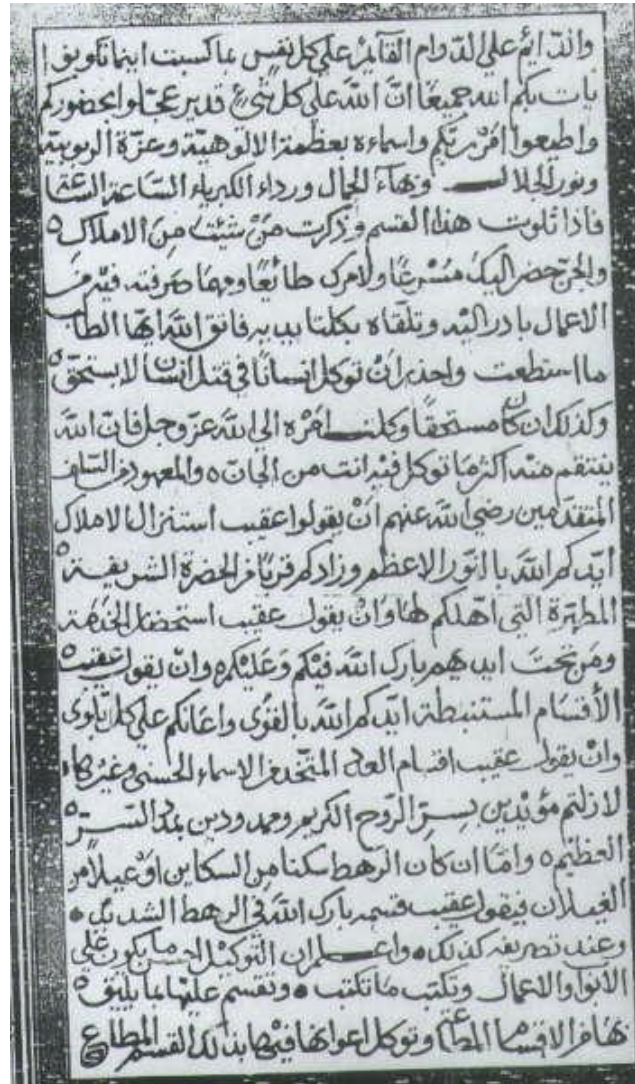 والدّايم علي الدّوام القآيم علي كل نفس بما كسبت اينما تكونوا
يات بكم الله جميعًا انّ الله علي كل شيٍ قدير عجّلوا بحضوركم
واطيعوا امر ربّكم واسماءه بعظمة الالوهيّة وعزّة الربوبيّة
ونور الجلال وبهآء الجمال ورداء الكبرياء السّاعة السّاعة
فاذا تلوت هذا القسم وذكرت مَنْ شئت مِنَ الاملاك
والجنّ حضر اليك مُسْرعًا ولامرك طائعًا ومهما صرفته فيه من
الاعمال بادر اليه وتلقّاه بكلتا يديه فاتق الله ايّها الطالب
ما استطعت واحذر ان توكل انسانًا في قتل انسان لا يستحق
وكذلك ان كان مستحقًا وكلت امره الي الله عزّ وجل فانّ الله
ينتقم منه اكثر ما توكل فيه انت من الجانّ والمعهود من السّلف
المتقدمين رضي الله عنهم انْ يقولوا عقيب استنزال الاملاك
ايّدكم الله بالنّور الاعظم وزادكم قربًا من الحضرة الشريفة
المطهّرة التي اهّلكم لها وانْ يقول عقيب استحضار الخدمة
ومَن تحت ايديهم بارك الله فيكم وعليكم وانْ يقول عقيب
الأقسام المستنبطة ايّدكم الله بالقوى واعانكم علي كل بلوى
وانْ يقول عقيب اقسام المتخد من الاسماء الحسنى وغيرها
لازلتم مؤيّدين بسرّ الرّوح الكريم وممدودين بمدد السّرّ
العظيم وامّا ان كان الرهط سكنا من السكاين اوْ عيلاً من
الغيلان فيقول عقيب قسمه بارك الله في الرهط الشديد
وعند تصريفه كذلك واعلم ان التوكيل احسن ما يكون علي
الابواب والاعمال وتكتب ما تكتب وتقسم عليها بما يليق
بها من الاقسام المطاعة وتوكل اعوانها فيها بذلك القسم المطاع